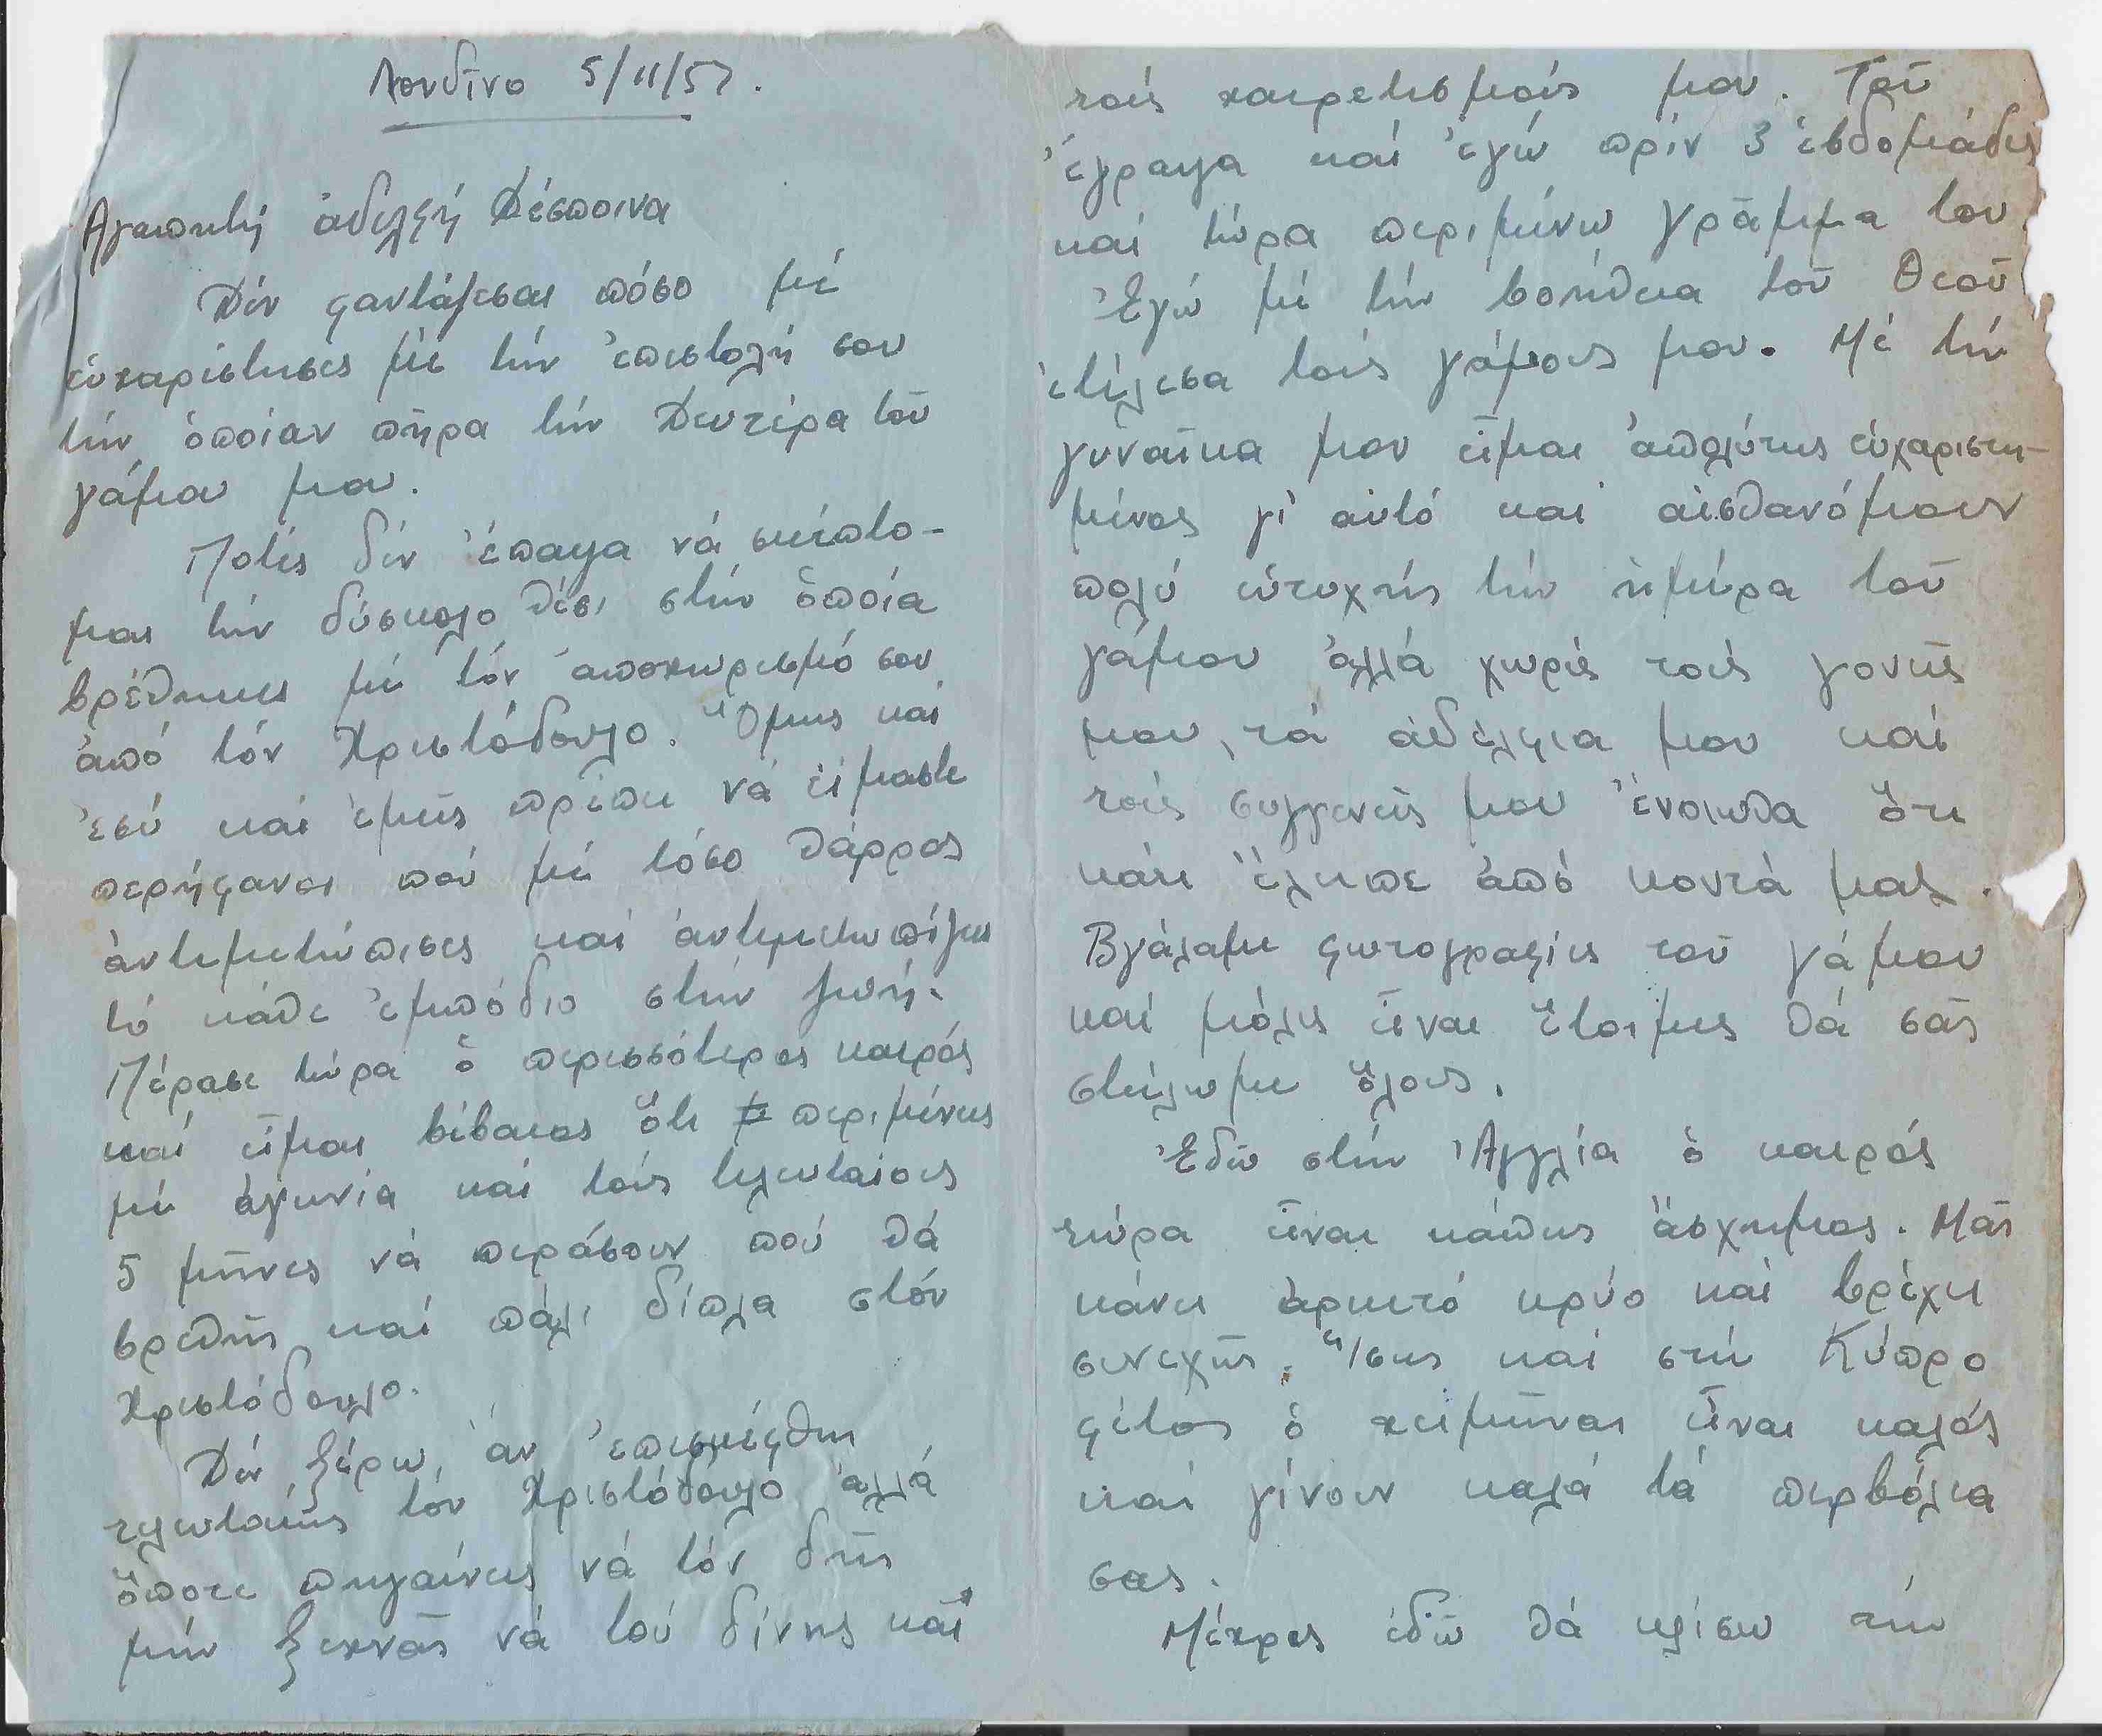 Λονδῖνο 5/11/57.
Ἀγαπητή ἀδελφή Δέσποινα
Δέν φαντάζεσαι πόσο μέ
εὐχαρίστησες μέ τήν ἐπιστολή σου
τήν ὁποίαν πῆρα τήν Δευτέρα τοῦ
γάμου μου.
Ποτές δέν ἔπαψα νά σκέπτο-
μαι τήν δύσκολο θέσι στήν ὁποία
βρέθηκες μέ τόν ἀποχωρισμό σου
ἀπό τόν Χριστόδουλο. Ὅμως καί
ἐσύ καί ἐμεῖς πρέπει νά εἴμαστε
περήφανοι πού μέ τόσο θάρρος
ἀντιμετώπισες καί ἀντιμετωπίζεις
τό κάθε ἐμπόδιο στήν ζωή.
Πέρασε τώρα ὁ περισσότερος καιρός
καί εἶμαι βέβαιος ὅτι περιμένεις
μέ ἀγωνία καί τούς τελευταίους
5 μῆνες νά περάσουν πού θά
βρεθῆς καί πάλι δίπλα στόν
Χριστόδουλο.
Δέν ξέρω ἄν ἐπισκέφθης
τελευταίως τόν Χριστόδουλο ἀλλά
ὅποτε πηγαίνεις νά τόν δῆς
μήν ξεχνᾶς νά τοῦ δίνης καί
τούς χαιρετισμούς μου. Τοῦ
ἔγραψα καί ἐγώ πρίν 3 ἑβδομάδες
καί τώρα περιμένω γρᾶμμα του.
Ἐγώ μέ τήν βοήθεια τοῦ Θεοῦ
ἐτέλεσα τούς γάμους μου. Μέ τήν
γυναῖκα μου εἶμαι ἀπολύτως εὐχαριστη-
μένος γι' αὐτό καί αἰσθανόμουν
πολύ εὐτυχής τήν ἡμέρα τοῦ
γάμου ἀλλά χωρίς τούς γονεῖς
μου, τά ἀδέλφια μου καί
τούς συγγενεῖς μου ἔνοιωθα ὅτι
κάτι ἔλειπε ἀπό κοντά μας.
Βγάλαμε φωτογραφίες τοῦ γάμου
καί μόλις εἶναι ἕτοιμες θά σᾶς
στείλωμε ὅλους.
Ἐδῶ στήν Ἀγγλία ὁ καιρός
τώρα εἶναι κάπως ἄσχημος. Μᾶς
κάνει ἀρκετό κρύο καί βρέχει
συνεχῶς. Ἴσως καί στήν Κύπρο
φέτος ὁ χειμῶνας εἶναι καλός
καί γίνουν καλά τά περβόλια
σας.
Μέχρις ἐδῶ θά κλείσω τήν